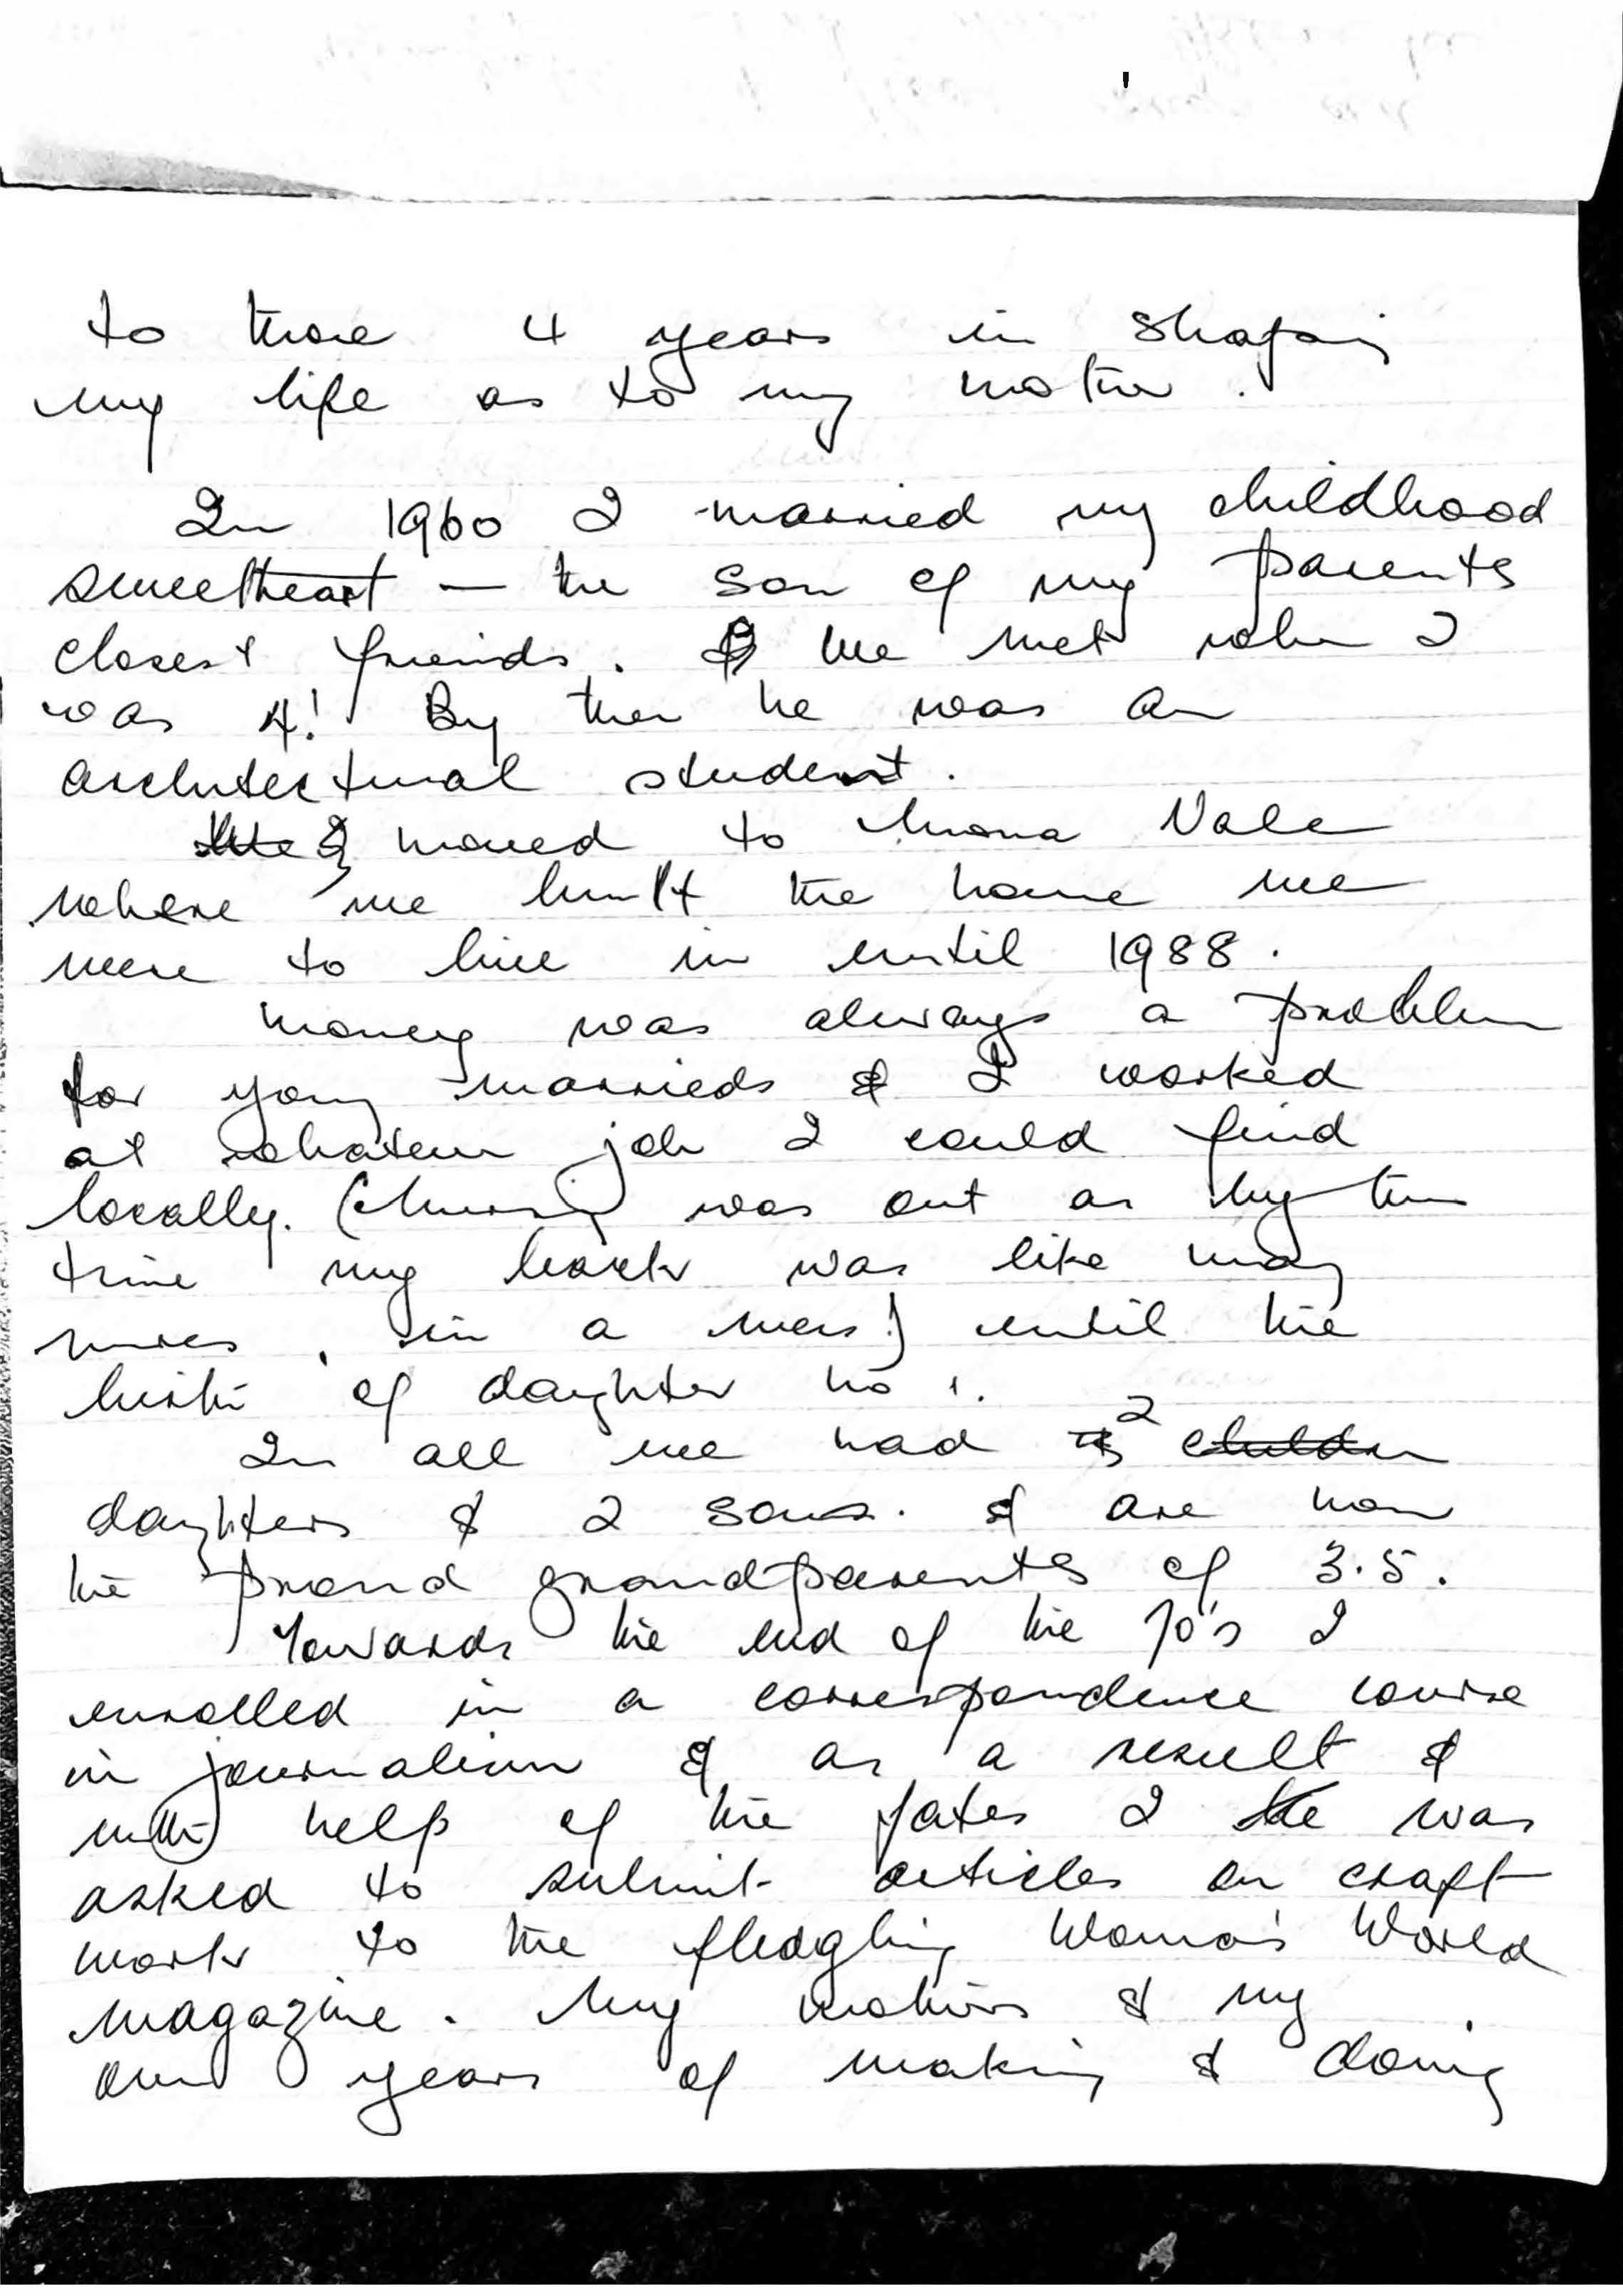 to those 4 years in shaping
my life as to my mother.
In 1960 I married my childhood
sweetheart — the son of my parents
closest friends. We met when I
was 4! By then he was an
architectural student.
moved to Mona Vale
where we built the home we
were to live in until 1988.
Money was always a problem
for young marrieds & I worked
at whatever job I could find
locally. (Nursing was out as by this
time my back was like many
nurses, in a mess) until the
birth of daughter no 1.
In all we had 2 children
daughters & 2 sons. & are now
the proud grandparents of 3.5.
Towards the end of the 70's I
enrolled in a correspondence course
in journalism & as a result &
with help of the fates I was
asked to submit articles on craft
work to the fledgling Woman's World
magazine. My mothers & my
own years of making & doing